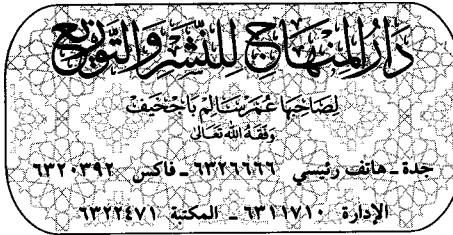 دَارُ المِنْهَاجِ لِلنَّشْرِ وَالتَّوْزِيعِ
لِصَاحِبِهَا عُمَر سَالِم بَاجْخِيف
وَفَّقَهُ اللهُ تَعَالَى
جدة ـ هاتف رئيسي ٦٣٢٦٦٦٦ ـ فاكس ٦٣٢٠٣٩٢
الإدارة ٦٣١١٧١٠ ـ المكتبة ٦٣٢٢٤٧١